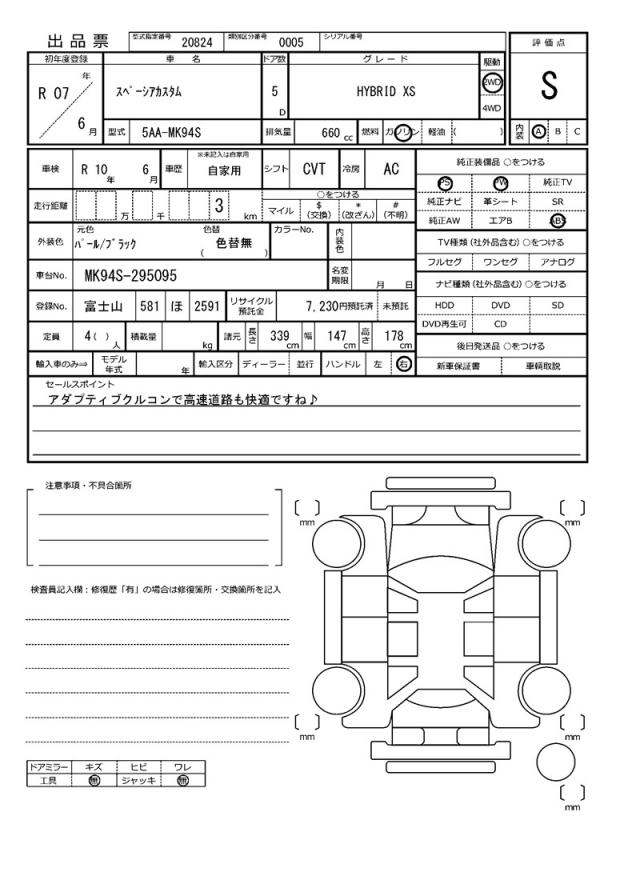 出品票 型式指定番号 20824 類別区分番号 0005 シリアル番号
評価点
S
初年度登録 車名 ドア数 グレード 駆動
R 07 年 6 月 スペーシアカスタム 5 D HYBRID XS 2WD
4WD
型式 5AA-MK94S 排気量 660 cc 燃料 ガソリン 軽油 ( ) 内装 A B C
車検 R 10 年 6 月 車歴 ※未記入は自家用 自家用 シフト CVT 冷房 AC
走行距離 万 千 3 km
○をつける
マイル $(交換) *(改ざん) #(不明)
外装色 元色 パール/ブラック 色替 ( 色替無 ) カラーNo. 内装色
車台No. MK94S-295095 名変期限 月 日
登録No. 富士山 581 ほ 2591 リサイクル預託金 7,230円預託済 未預託
定員 4( )人 積載量 kg 諸元 長さ 339 cm 幅 147 cm 高さ 178 cm
輸入車のみ⇒ モデル年式 年 輸入区分 ディーラー 並行 ハンドル 左 右
純正装備品 ○をつける
PS PW 純正TV
純正ナビ 革シート SR
純正AW エアB ABS
TV種類(社外品含む) ○をつける
フルセグ ワンセグ アナログ
ナビ種類(社外品含む) ○をつける
HDD DVD SD
DVD再生可 CD
後日発送品 ○をつける
新車保証書 車輌取説
セールスポイント
アダプティブクルコンで高速道路も快適ですね♪
注意事項・不具合箇所
検査員記入欄：修復歴「有」の場合は修復箇所・交換箇所を記入
ドアミラー キズ ヒビ ワレ
工具 無 ジャッキ 無
〔 〕mm
〔 〕mm
〔 〕mm
〔 〕mm
〔 〕mm